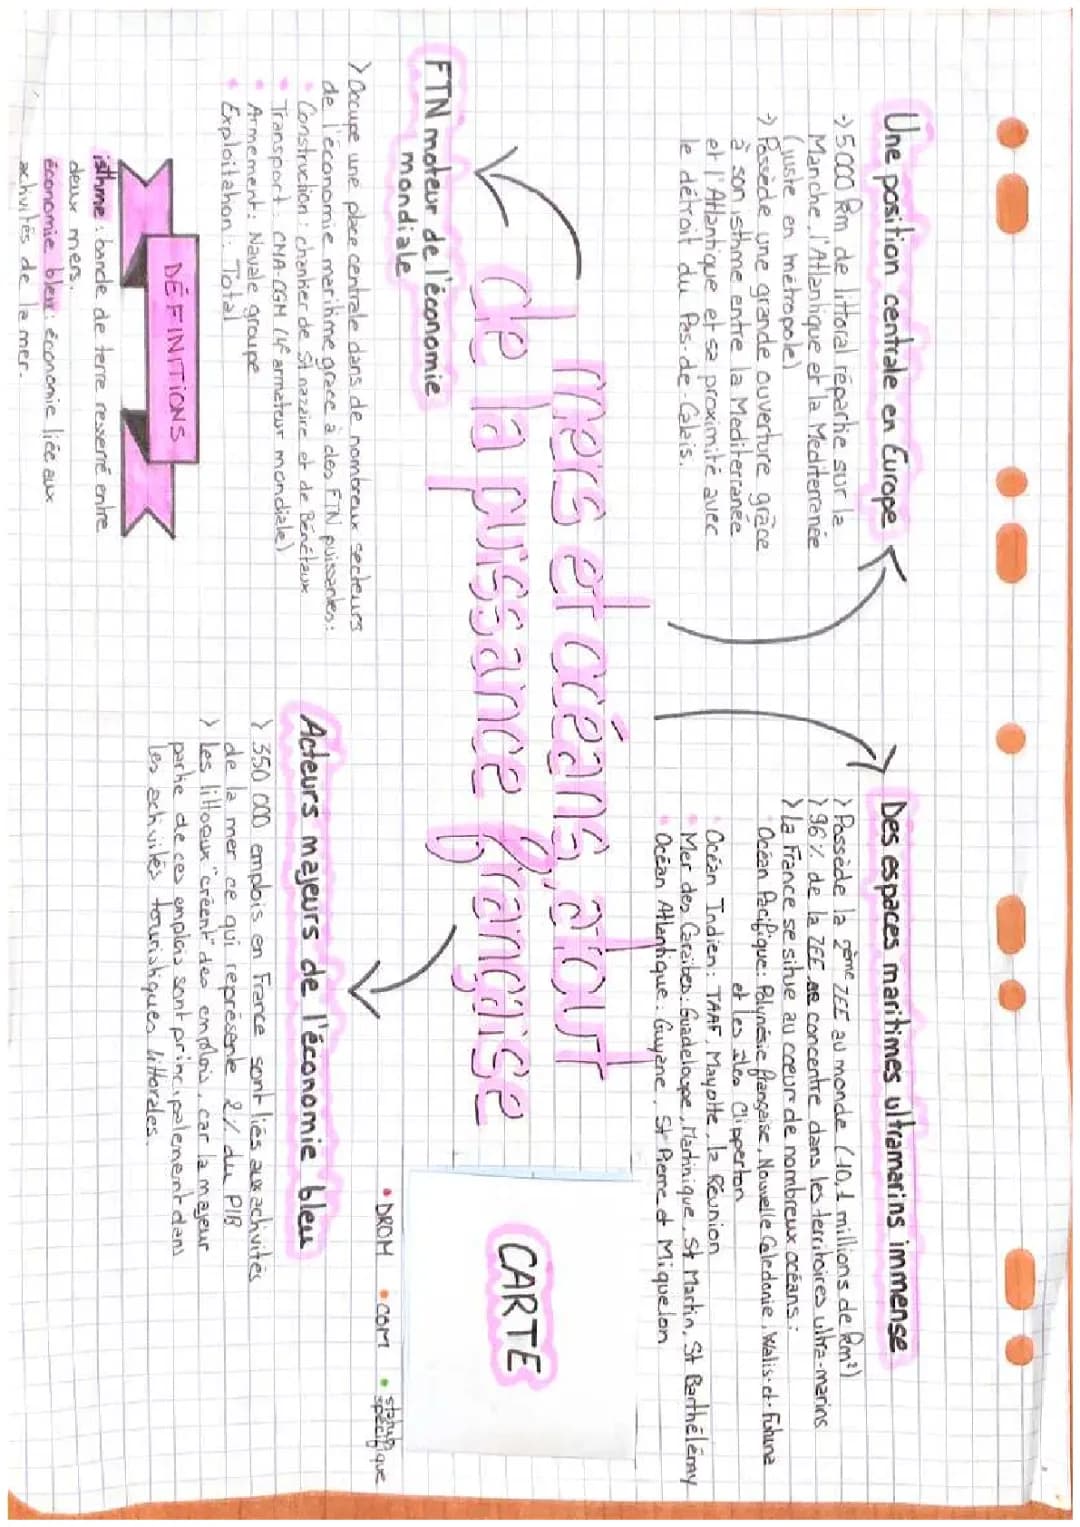 mers et océans, atout
de la puissance française
Une position centrale en Europe
-> 5000 km de littoral répartie sur la
Manche, l'Atlantique et la Mediterranée
(juste en métropole)
-> Possède une grande ouverture grâce
à son isthme entre la Mediterranée
et l'Atlantique et sa proximité avec
le détroit du Pas-de-Calais.
Des espaces maritimes ultramarins immense
> Possède la 2ème ZEE au monde (10,1 millions de km²)
> 96% de la ZEE se concentre dans les territoires ultra-marins
> La France se situe au cœur de nombreux océans :
• Océan Pacifique : Polynésie française, Nouvelle Caledonie, Walis-et-Futuna
et les îles Clipperton
• Océan Indien : TAAF, Mayotte, la Réunion
• Mer des Caraïbes : Guadeloupe, Martinique, St Martin, St Barthélémy
• Océan Atlantique : Guyane, St Pierre et Miquelon
FTN moteur de l'économie
mondiale
> Occupe une place centrale dans de nombreux secteurs
de l'économie maritime grâce à des FTN puissantes :
• Construction : chantier de St nazaire et de Bénéteaux
• Transport : CMA-CGM (4e armateur mondiale)
• Armement : Navale groupe
• Exploitation : Total
DÉFINITIONS
isthme : bande de terre resserré entre
deux mers.
économie bleu : économie liée aux
activités de la mer.
CARTE
• DROM • COM • statut
spécifique
Acteurs majeurs de l'économie bleu
> 350 000 emplois en France sont liés aux activités
de la mer ce qui représente 2% du PIB
> Les littoraux "créent" des emplois, car la majeur
partie de ces emplois sont principalement dans
les activités touristiques littorales.